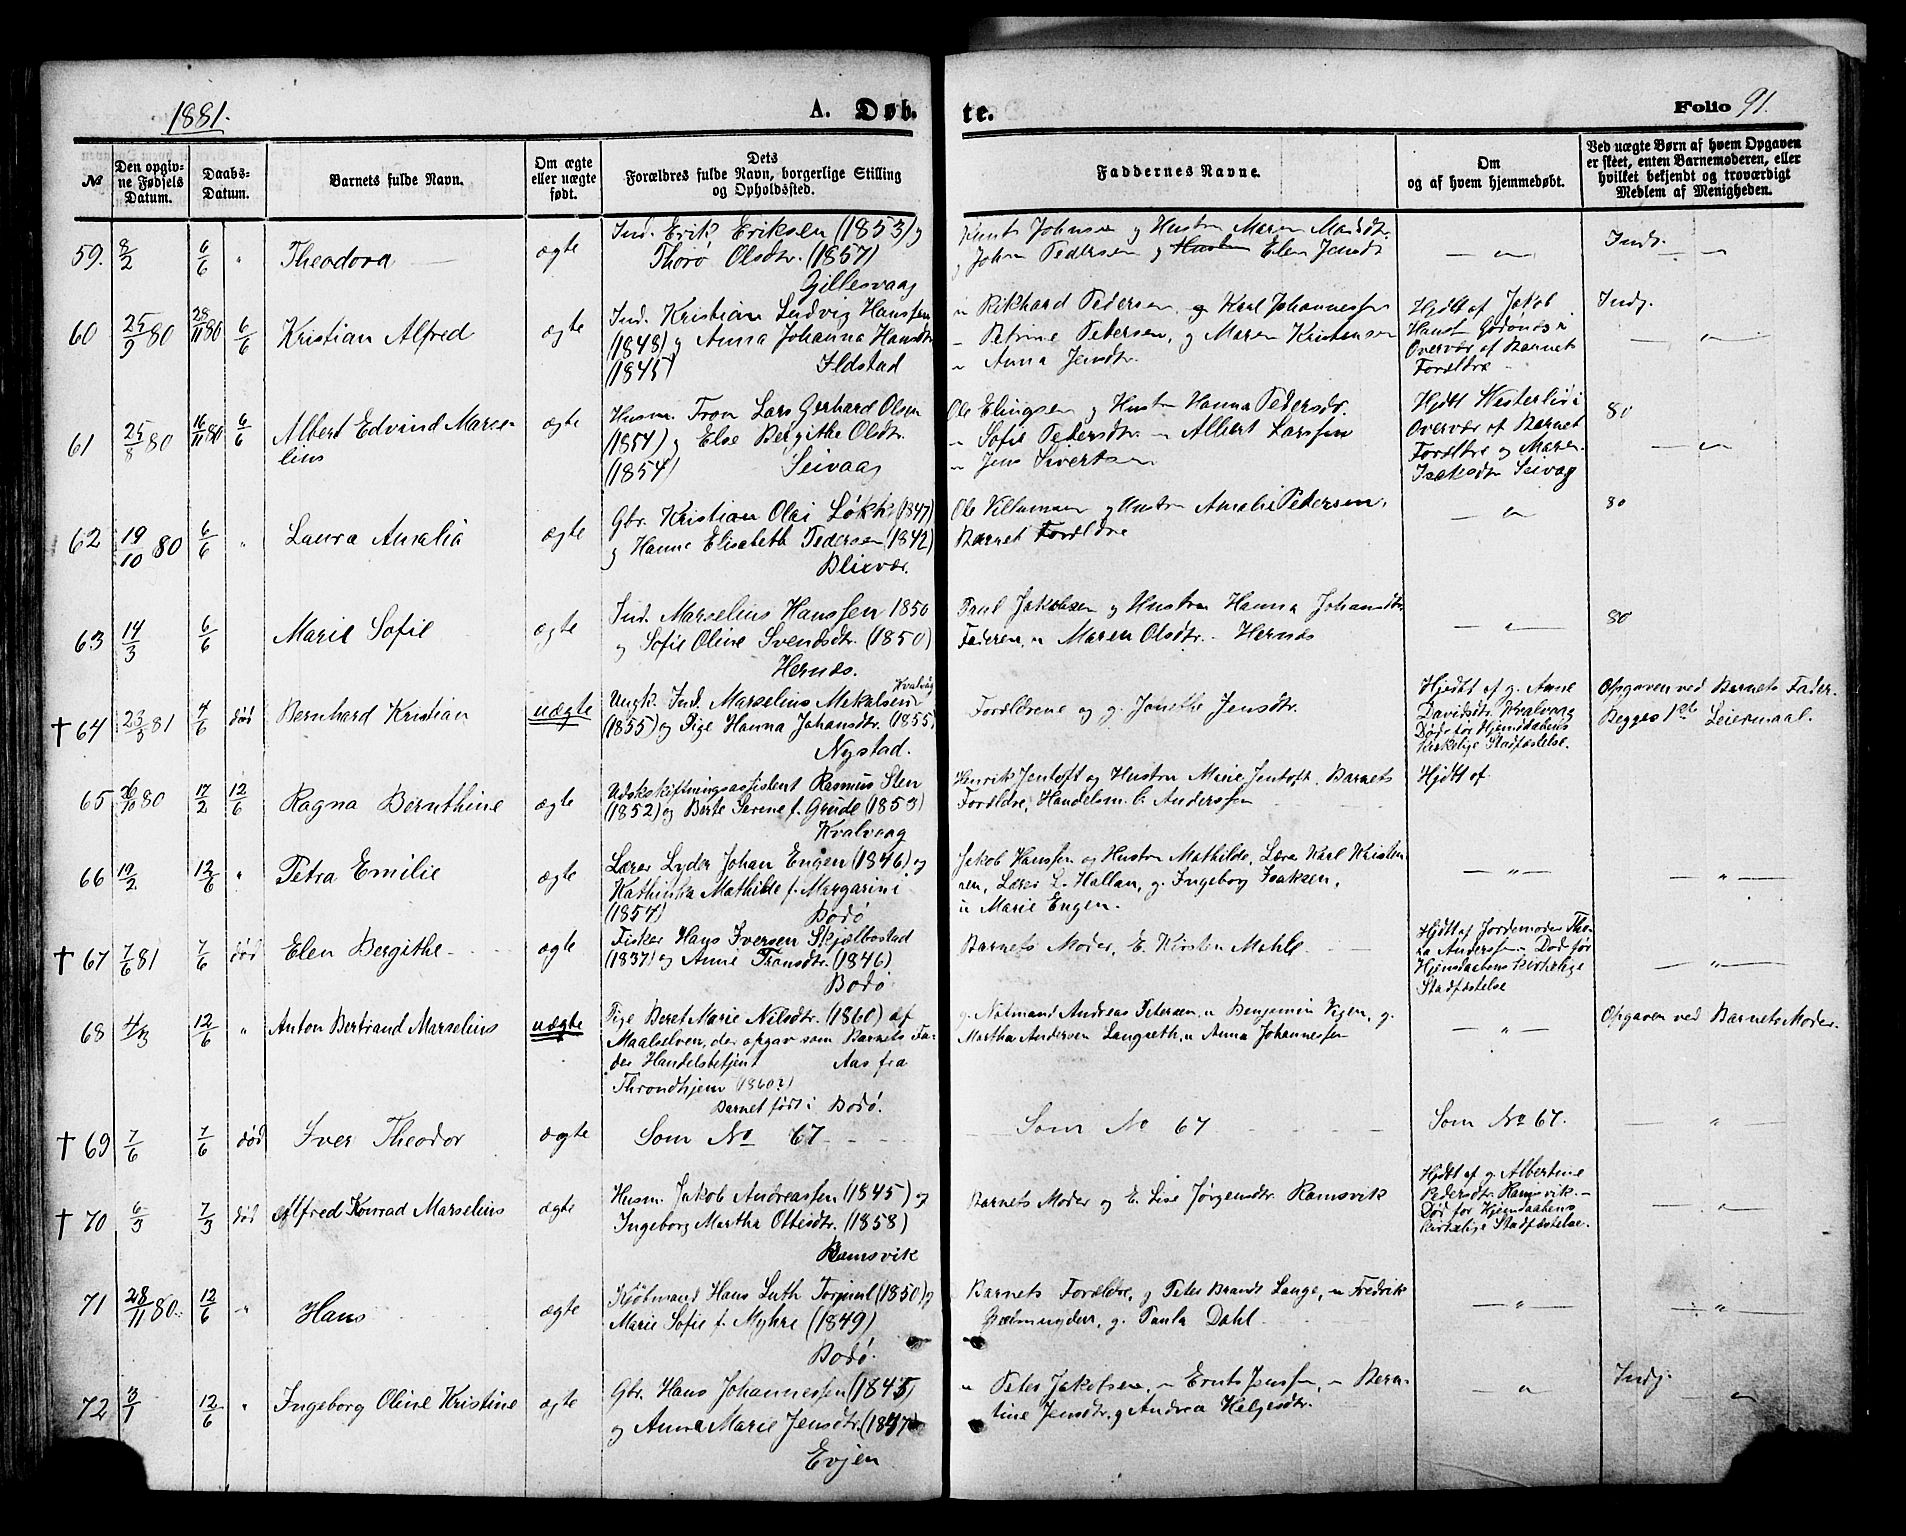 1881. A. Døb-
te. Folio 91.
№
Den opgiv-
ne Fødsels
Datum.
Daabs-
Datum.
Barnets fulde Navn.
Om ægte
eller uægte
født.
Dets
Forældres fulde Navn, borgerlige Stilling
og Opholdssted.
Faddernes Navne.
Om
og af hvem hjemmedøbt.
Ved uægte Børn af hvem Opgaven
er skeet, enten Barnemoderen, eller
hvilket bekjendt og troværdigt
Medlem af Menigheden.
59. 8/2 6/6 " Theodora ægte
Ind. Erik Eriksen (1853) og
Thorø Olsdtr. (1857)
Gillesvaag
Johnsen og Hustru Maren
Johan Pedersen og Hustru Elen Jensdt
— " —
Indj.
— " —
60 25/9 80 28/11 80 6/6 Kristian Alfred ægte
Ind. Kristian Ludvig Hanssen
(1848) og Anna Johanna Hansdtr
(1845) Ildstad
" Rikhard Pedersen og Karl Johannessen
" Petrine Pedersen, og Maren Kristensen
" Anna Jensdtr.
Hjdt af Jakob
Overvær af Barnets
Forældre
Indj.
— " —
61 25/8 80 16/11 80 6/6 Albert Edvind Marse-
lius ægte
Husm. Lars Gerhard Olsen
(1857) og Else Bergithe Olsdtr.
(1854) Seivaag
Ole Elingsen og Hustru Hanna Pedersdtr.
" Sofie Pedersdtr. " Albert Larssen
" Jens Sivertsen
Hjdt
Overvær af Barnets
Forældre og Maren
Isaksdtr Seivag
80
— " —
62 19/10 80 6/6 " Laura Amalia ægte
Gbr. Kristian Olai Løkk (1847)
og Hanne Elisabeth Pedersen (1842)
Blixvær.
Ole Villumsen og Hustru Amalie Pedersen,
Barnets Forældre
— " —
80
63 14/3 6/6 Marie Sofie ægte
Ind. Marselius Hanssen 1850
og Sofie Oline Svendsdtr. (1850)
Hernæs.
Paul Jakobsen og Hustru Hanna Johansdtr
Faderen, " Maren Olsdtr. - Hernæs
— " —
80
† 64 23/3 81 4/6 død Bernhard Kristian uægte
Ungk. Ind. Marselius Mekalsen Kvalvåg
(1855) og Pige Hanna Johansdtr. (1855)
Nystad.
Forældrene og g. Janethe Jensdtr.
Hjedt af g. Anne
Davidsdtr. Kvalvaag
Død før Hjemdaabens
kirkelige Stadfæstelse.
Opgaven ved Barnets Fader.
Begges 1ste Leiermaal.
65 26/10 80 17/2 12/6 Ragna Bernthine ægte
Udskiftningsassistent Rasmus Sten
(1852) og Berte Serene f. Grude (1853)
Kvalvaag
Henrik Jentoft og Hustru Mirie Jentoft, Barnets
Forældre, Handelsm. C. Anderssen
Hjdt af
66 19/2 12/6 " Petra Emilie ægte
Lærer Lyder Johan Engen (1846) og
Kathinka Mathilde f. Margarini
(1857) Bodø
Jakob Hanssen og Hustru Mathilde, Lærer Karl Kristen-
sen, Lærer L. Hallan, g. Ingeborg Isaksen,
u Marie Engen.
— " —
— " —
† 67 7/6 81 7/6 død Elen Bergithe ægte
Fisker Hans Iversen Skjelbostad
(1837) og Anne Fransdtr. (1846)
Bodø
Barnets Moder, E. Kirsten Mohle
Hjdt af Jordemoder Tho-
ra Anderssen. Død før
Hjemdaabens kirkelige
Stadfæstelse
— " —
68 4/3 12/6 " Anton Bertrand Marselius uægte
Pige Beret Marie Nilsdtr. (1860) af
Maalselven, der opgav som Barnets Fa-
der Handelsbetjent Aas fra
Throndhjem (1860?)
Barnet født i Bodø.
g. Notmand Andreas Petersen, u Benjamin Vigen, g.
Martha Andersen Langseth, u Anna Johannessen
— " —
Opgaven ved Barnets Moder.
† 69 7/6 7/6 død Iver Theodor ægte
Som No 67
Som No 67
Som No 67.
"
† 70 6/3 7/3 død Alfred Konrad Marselius ægte
Husm. Jakob Andreassen (1845) og
Ingeborg Martha Ottisdtr. (1858)
Ramsvik
Barnets Moder og E. Lise Jørgensdtr. Ramsvik
Hjdt af g. Albertine
Pedersdtr. Ramsvik.—
Død før Hjemdaabens
kirkelige Stadfæstelse.
— " —
71 28/11 80. 12/6 " Hans ægte
Kjøbmand Hans Luth (1850) og
Marie Sofie f. Myhre (1849)
Bodø.
Barnets Forældre, g Peter Brandt Lange, u Fredrik
g. Paula Dahl
— " —
— " —
72 3/1 12/6 " Ingeborg Oline Kristine ægte
Gbr. Hans Johannessen (1845)
og Anna Marie Jensdtr. (1847)
Evjen
" Peter Jakobsen, " Ernst Jenssen, " Bern-
tine Jensdtr, g Andrea Helgesdtr.
— " —
Indj.
— " —